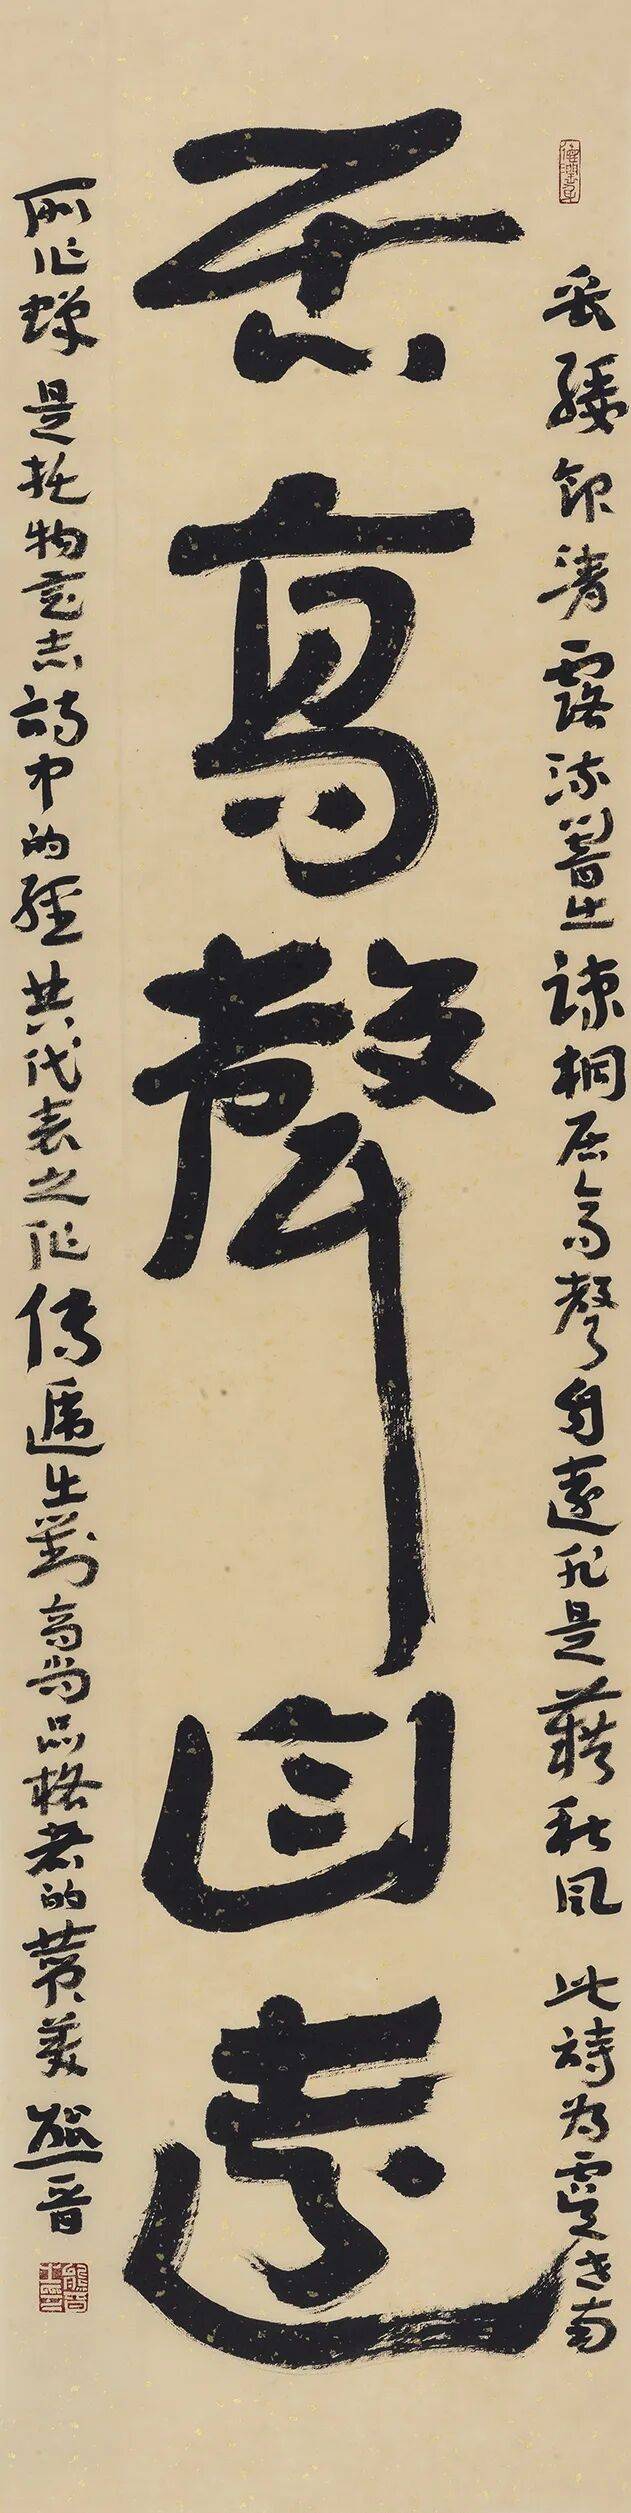 居高聲自遠
垂緌飲清露流響出疎桐居高聲自遠非是藉秋風 此詩為虞世南
所作蟬 是托物言志詩中的經典代表之作傳遞出對高尚品格者的贊美 熊晋